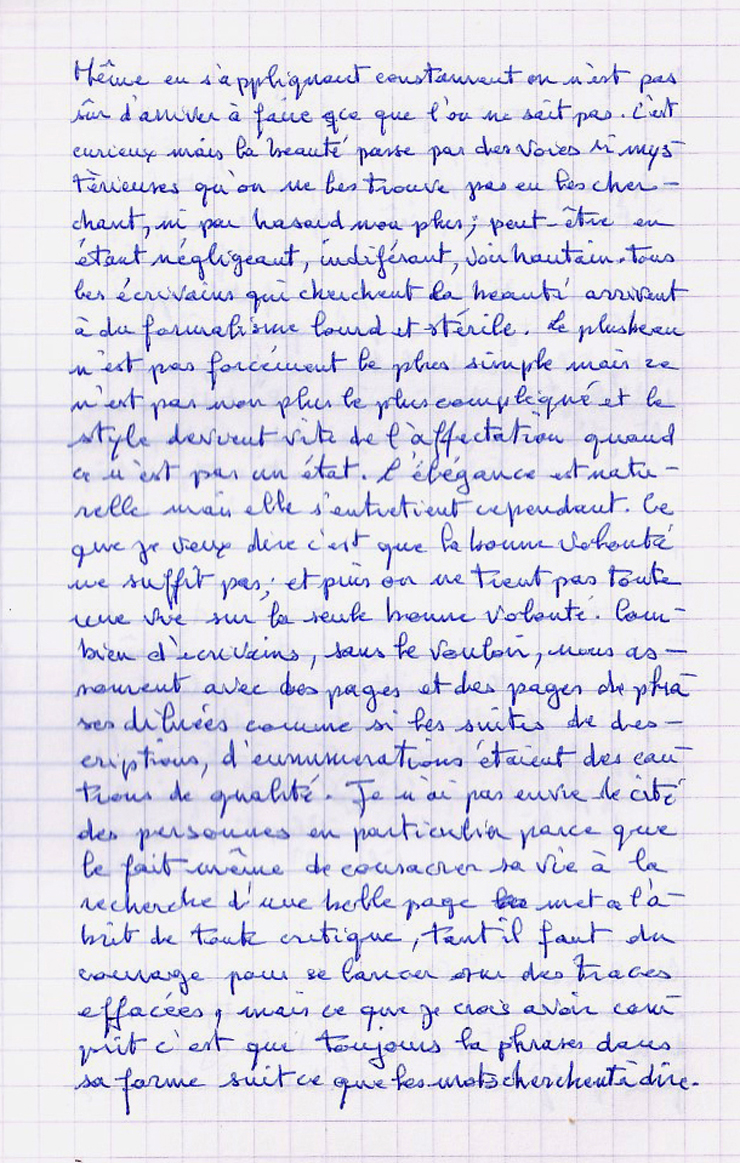 Même en s'appliquant constamment on n'est pas
sûr d'arriver à faire ce que l'on ne sait pas. C'est
curieux mais la beauté passe par des voies si mys-
térieuses qu'on ne les trouve pas en les cher-
chant, ni par hasard non plus; peut-être en
étant négligeant, indiférant, voir hautain. tous
les écrivains qui cherchent la beauté arrivent
à du formalisme lourd et stérile. Le plus beau
n'est pas forcément le plus simple mais ce
n'est pas non plus le plus compliqué et le
style devient vite de l'affectation quand
ce n'est pas un état. L'élégance est natu-
relle mais elle s'entretient cependant. Ce
que je veux dire c'est que la bonne volonté
ne suffit pas; et puis on ne tient pas toute
une vie sur la seule bonne volonté. Com-
bien d'écrivains, sans le vouloir, nous as-
somment avec des pages et des pages de phra-
ses diluées comme si les suites de des-
criptions, d'ennumerations étaient des cau-
tions de qualité. Je n'ai pas envie de cité
des personnes en particulier parce que
le fait même de consacrer sa vie à la
recherche d'une belle page met a l'a-
brit de toute critique, tant il faut du
courage pour se lancer sur des traces
effacées, mais ce que je crois avoir com-
prit c'est que toujours la phrases dans
sa forme suit ce que les mots cherchent à dire.